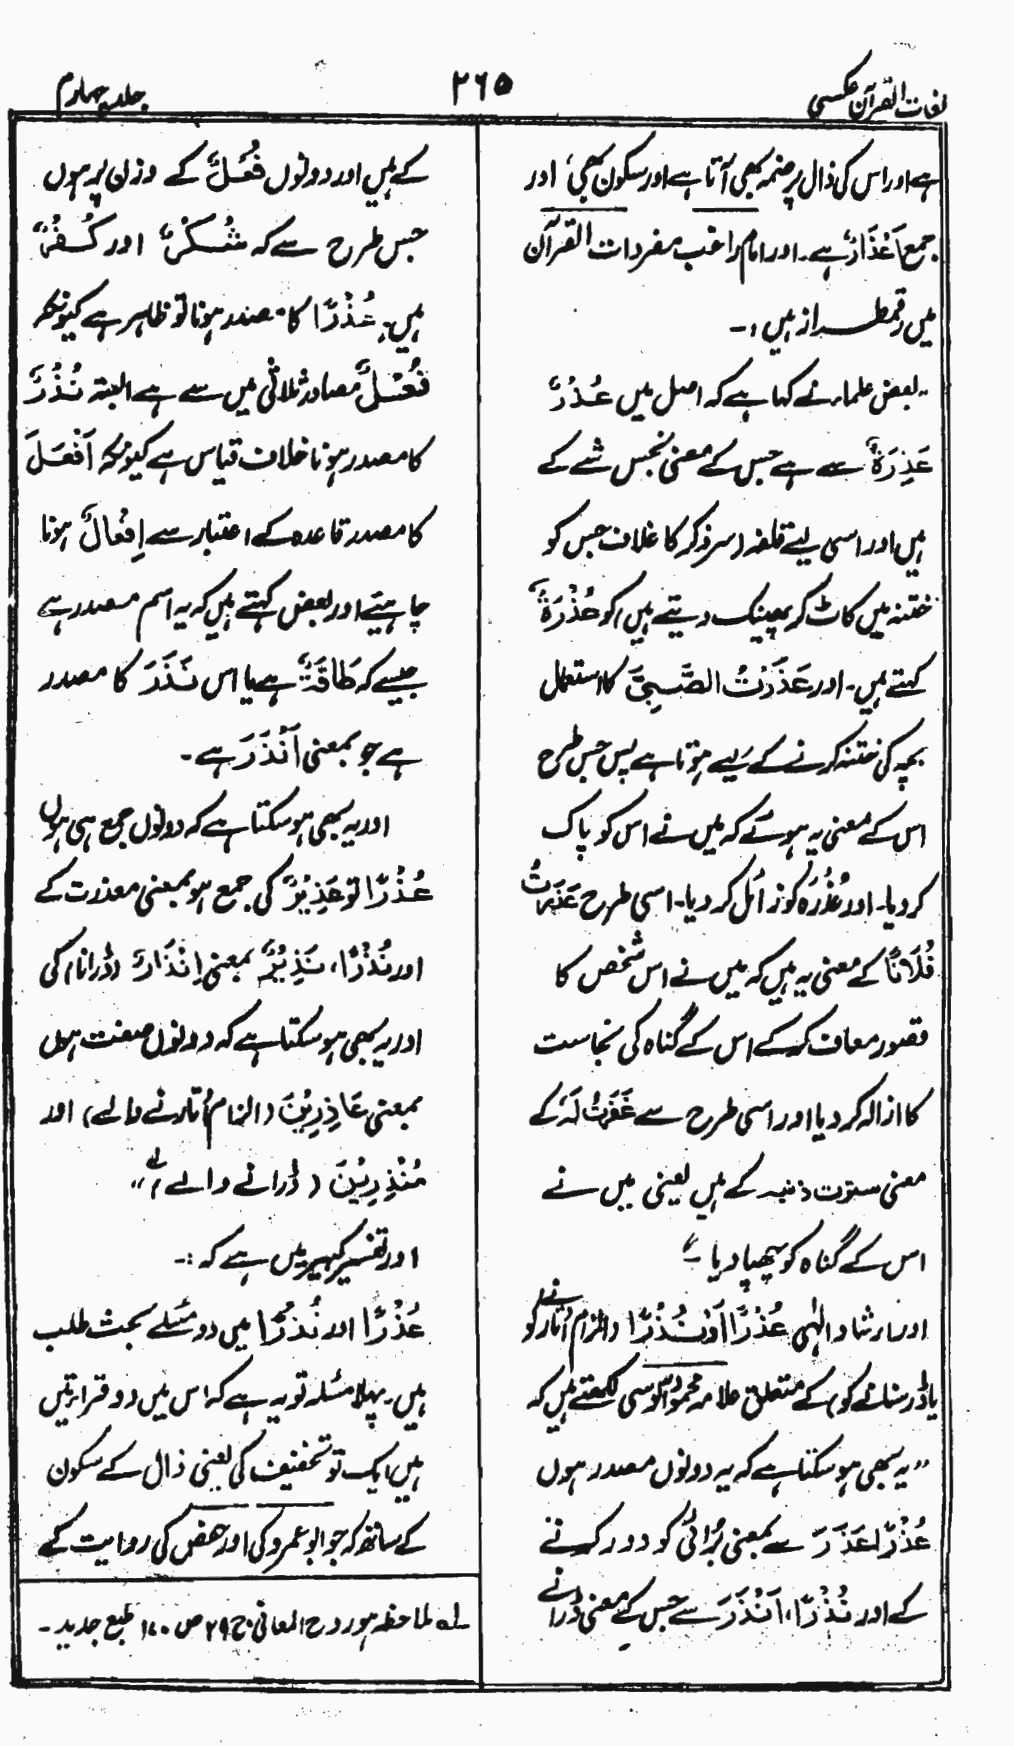 لغات القرآن عکسی
۲۶۵
جلد چہارم
ہے اور اس کی ذال پر ضمہ بھی آتا ہے اور سکون بھی، اور
جمع اَعْذَارٌ ہے۔ اور امام راغب مفردات القرآن
میں رقمطراز ہیں :۔
" بعض علماء نے کہا ہے کہ اصل میں عُذْرٌ
عَذِرَةٌ سے ہے جس کے معنی نجس شے کے
ہیں اور اسی لیے قلفہ (سر ذکر کا غلاف جس کو
ختنہ میں کاٹ کر پھینک دیتے ہیں) کو عُذْرَةٌ
کہتے ہیں۔ اور عَذَرْتُ الصَّبِيَّ کا استعمال
بچہ کی ختنہ کرنے کے لیے ہوتا ہے پس جس طرح
اس کے معنی یہ ہوئے کہ میں نے اس کو پاک
کر دیا۔ اور عُذْرَہ کو زائل کر دیا۔ اسی طرح عَذَرْتُ
فُلَانًا کے معنی یہ ہیں کہ میں نے اس شخص کا
قصور معاف کر کے اس کے گناہ کی نجاست
کا ازالہ کر دیا اور اسی طرح سے غَفَرْتُ لَہٗ کے
معنی سترت ذنبہ کے ہیں یعنی میں نے
اس کے گناہ کو چھپا دیا۔"
اور ارشاد الٰہی عُذْرًا اَوْ نُذْرًا (الزام اُتارنے کو
یا ڈر سنانے کو) کے متعلق علامہ محمود آلوسی لکھتے ہیں کہ
" یہ بھی ہو سکتا ہے کہ یہ دونوں مصدر ہوں
عُذْرًا عَذَرَ سے بمعنی بُرائی کو دور کرنے
کے اور نُذْرًا، اَنْذَرَ سے جس کے معنی ڈرانے
کے ہیں اور دونوں فُعْلٌ کے وزن پر ہوں
جس طرح سے کہ شُکْرٌ اور کُفْرٌ
ہیں۔ عُذْرًا کا مصدر ہونا تو ظاہر ہے کیونکہ
فُعْلٌ مصادر ثلاثی میں سے ہے البتہ نُذْرٌ
کا مصدر ہونا خلاف قیاس ہے کیونکہ اَفْعَلَ
کا مصدر قاعدہ کے اعتبار سے اِفْعَالٌ ہونا
چاہیئے اور بعض کہتے ہیں کہ یہ اسم مصدر ہے
جیسے کہ طَاقَةٌ ہے یا اس نَذَرَ کا مصدر
ہے جو بمعنی اَنْذَرَ ہے۔
اور یہ بھی ہو سکتا ہے کہ دونوں جمع ہی ہوں
عُذْرًا تو عَذِیْرٌ کی جمع ہو بمعنی معذرت کے
اور نُذْرًا، نَذِیْرٌ بمعنی اِنْذَارٌ (ڈرانا) کی
اور یہ بھی ہو سکتا ہے کہ دونوں صفت ہوں
بمعنی عَاذِرِیْنَ (الزام اُتارنے والے) اور
مُنْذِرِیْنَ (ڈرانے والے) لہ"
اور تفسیر کبیر میں ہے کہ :۔
عُذْرًا اور نُذْرًا میں دو مسئلے بحث طلب
ہیں۔ پہلا مسئلہ تو یہ ہے کہ اس میں دو قراءتیں
ہیں، ایک تو تخفیف کی یعنی ذال کے سکون
کے ساتھ کہ جو ابو عمرو کی اور حفص کی روایت کے
لہ ملاحظہ ہو روح المعانی ج ۲۹ ص ۱۷۰ طبع جدید۔